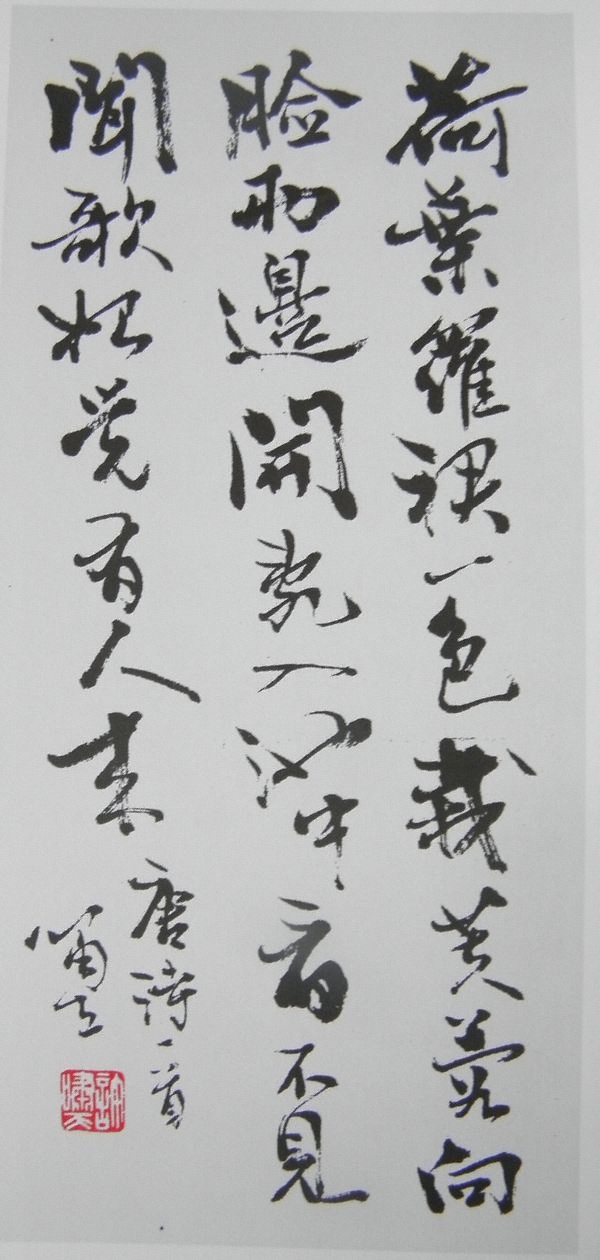 荷葉羅裙一色裁芙蓉向
脸两邊開亂入池中看不見
聞歌始覺有人来
唐詩一首
嘯天